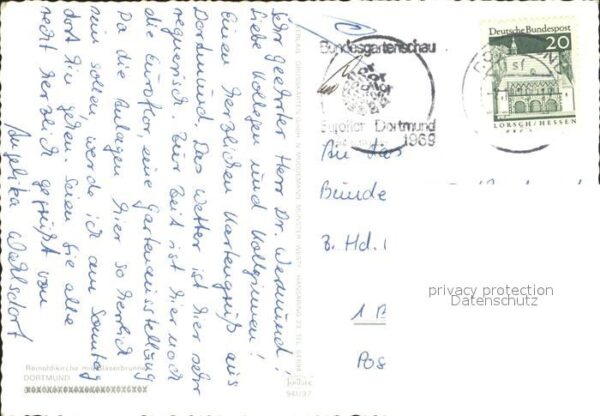 Sehr geehrter Herr Dr. Wermund!
Liebe Kollegen und Kolleginnen!
Einen herzlichen Kartengruß aus
Dortmund. Das Wetter ist hier sehr
regnerisch. Zur Zeit ist hier noch
die Euroflor eine Gartenausstellung
Da die Anlagen hier so herrlich
sein sollen werde ich am Sonntag
dort hin gehen. Seien Sie alle
recht herzlich gegrüßt von
Angelika Wahlsdorf
Reinoldikirche mit Bläserbrunnen
DORTMUND
941/37
Bundesgartenschau
Euroflor Dortmund
1969
Deutsche Bundespost
20
LORSCH/HESSEN
An das
Bunde
z. Hd.
1 B
Pos
privacy protection
Datenschutz